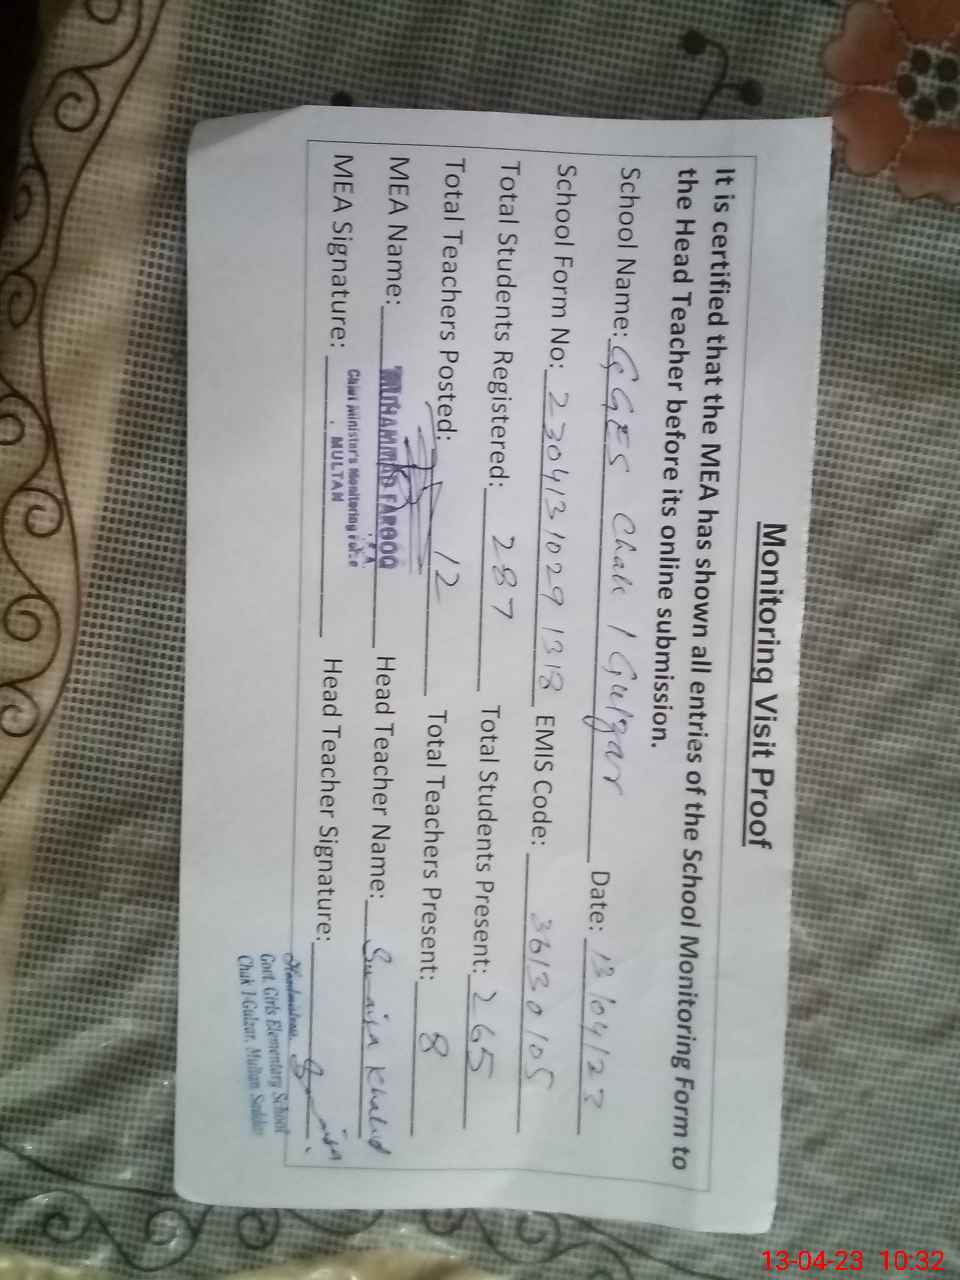 Monitoring Visit Proof
It is certified that the MEA has shown all entries of the School Monitoring Form to
the Head Teacher before its online submission.
School Name: GGES Chak 1 Gulzar Date: 13/04/23
School Form No: 2304131029 1318 EMIS Code: 36130105
Total Students Registered: 287 Total Students Present: 265
Total Teachers Posted: 12 Total Teachers Present: 8
MEA Name: MUHAMMAD FAROOQ Head Teacher Name: Khalid
Chief Minister's Monitoring Force
MULTAN
MEA Signature: Head Teacher Signature:
Headmistress
Govt. Girls Elementary School
Chak 1 Gulzar, Multan Saddar
13-04-23 10:32